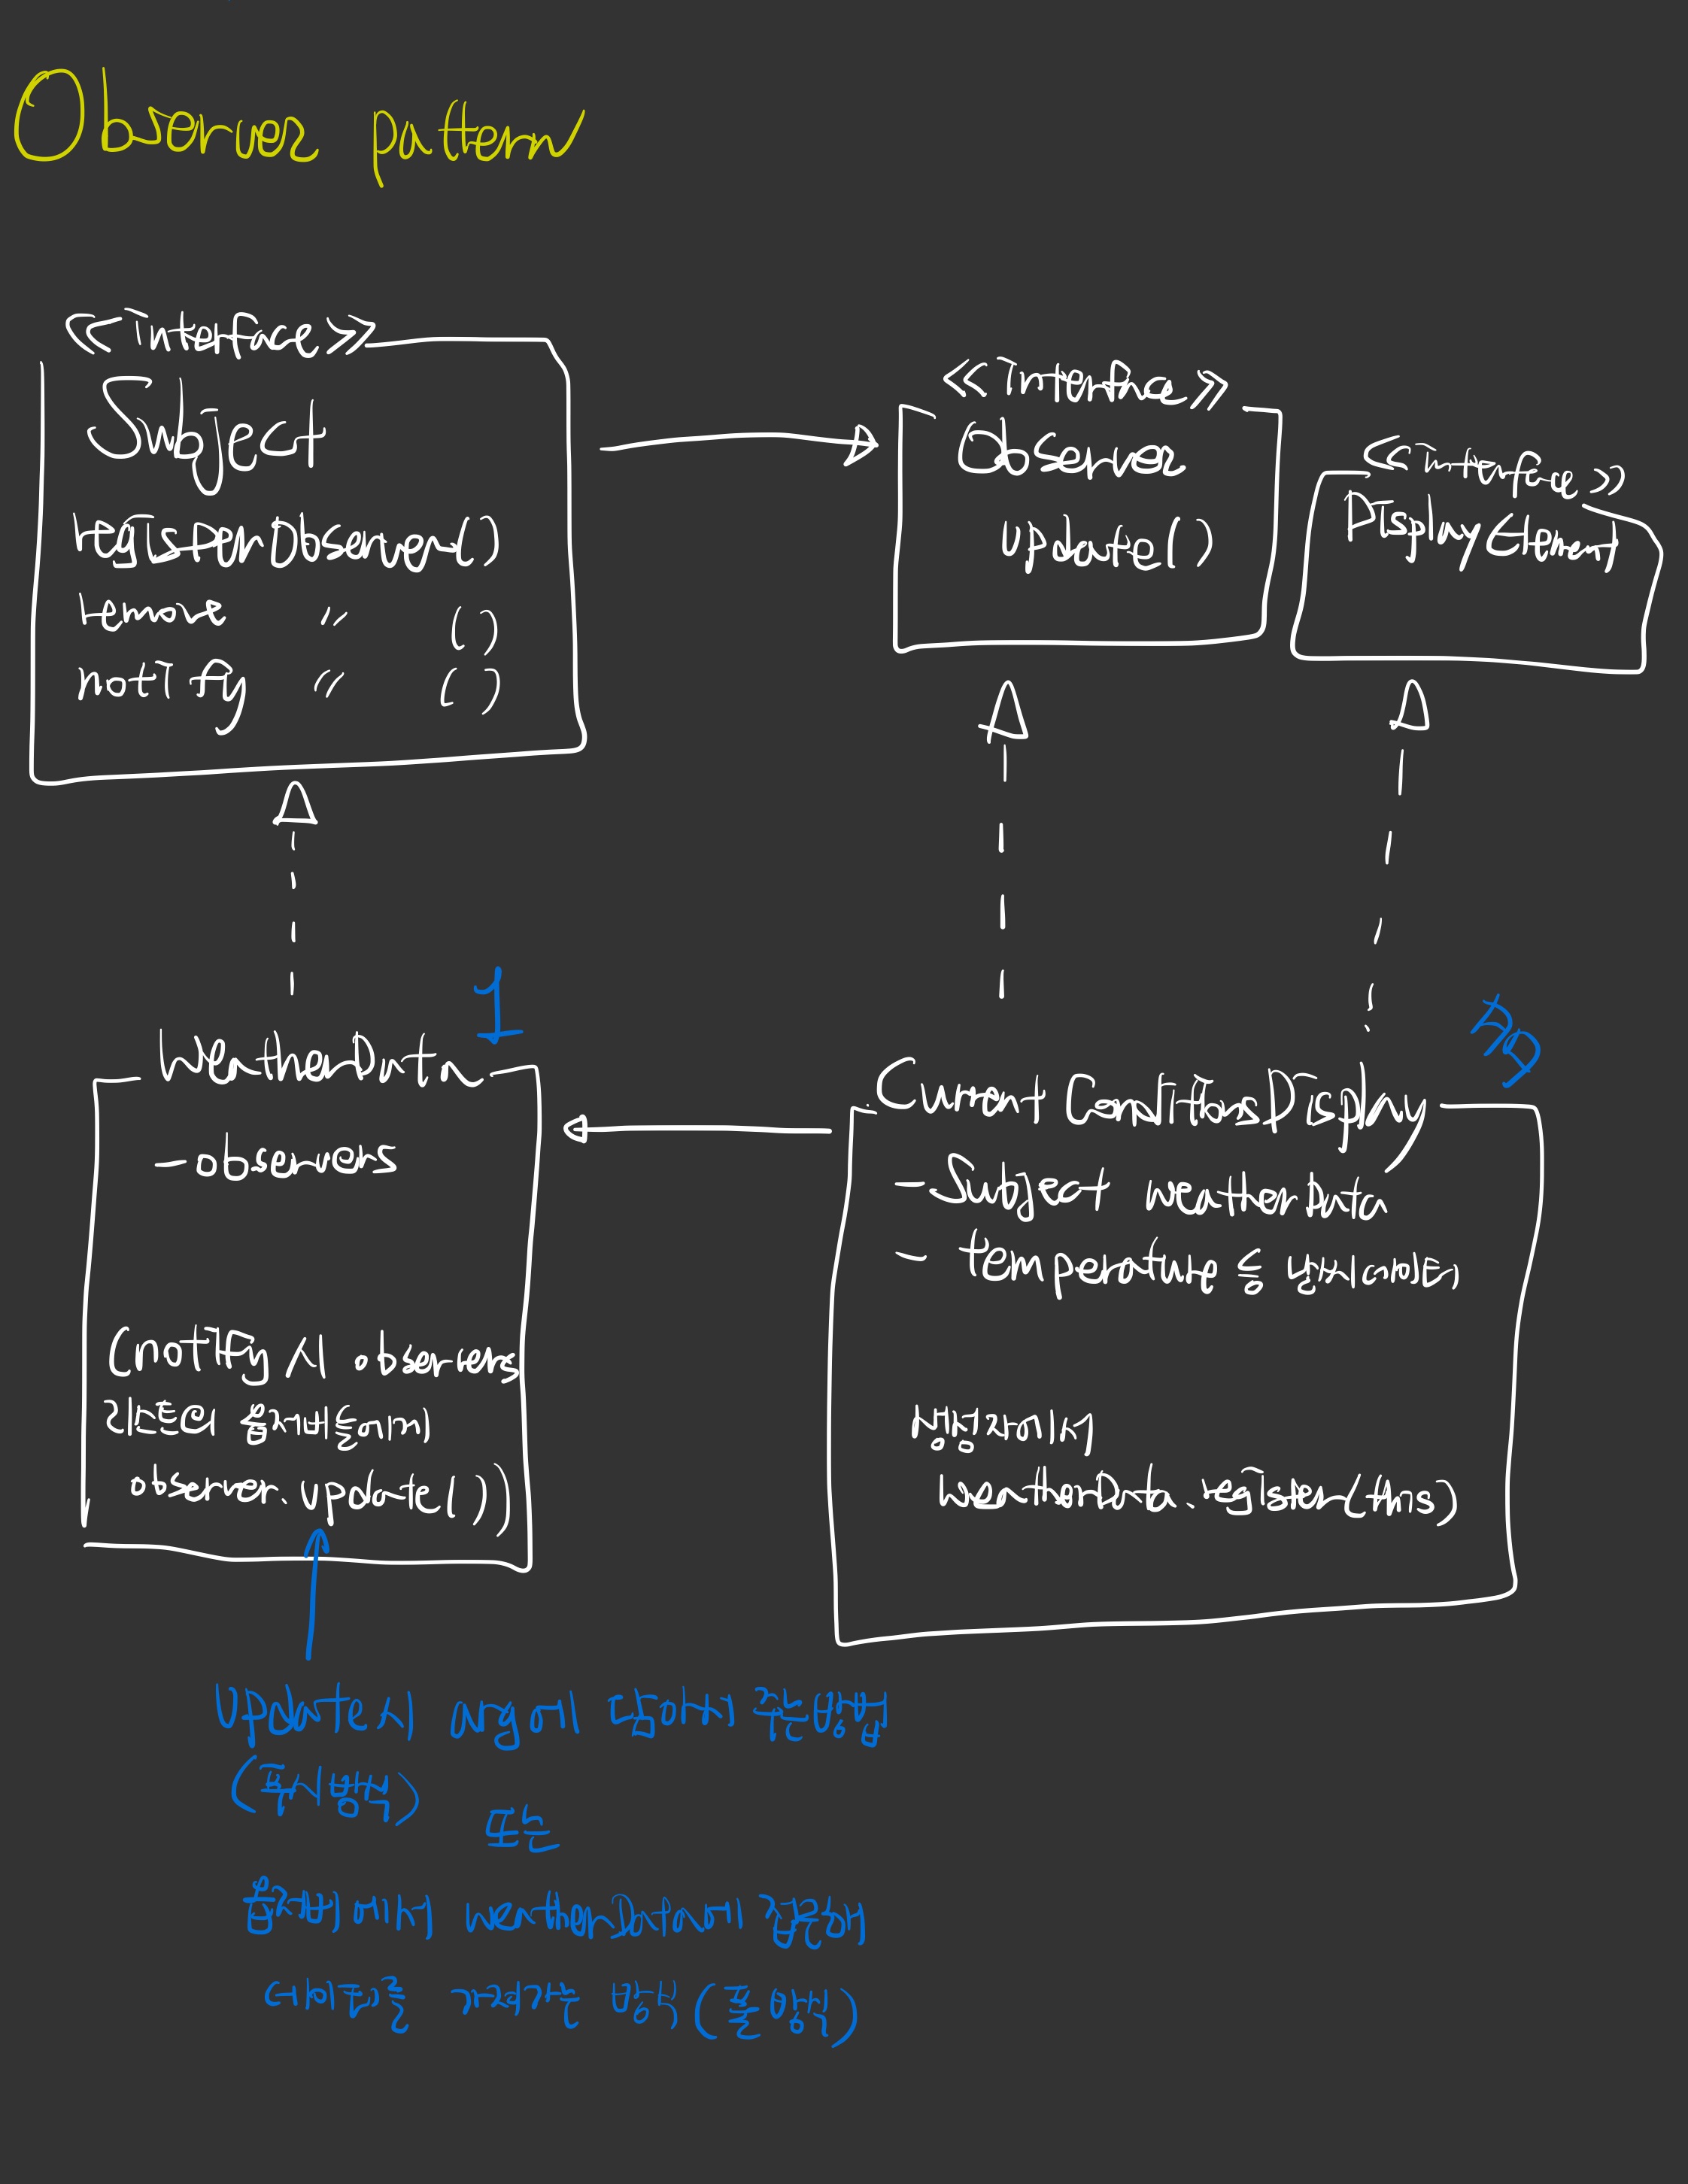 Observer pattern
<<interface>>
Subject
registerObserver()
remove 〃 ()
notify 〃 ()
<<Interface>>
Observer
update()
<<interface>>
DisplayElement
WeatherData
1
- observers
(notify All observers
리스트에 옵저버들에게)
observer.update())
多
Current ConditionsDisplay
- Subject weatherData
- temperature 등 날씨
생성자에서
WeatherData.register(this)
update시 상에서 담아서 주는방법
(푸시방식)
또는
옵저버에서 weatherData에 접근해
데이터를 가져가는 방식(풀 방식)